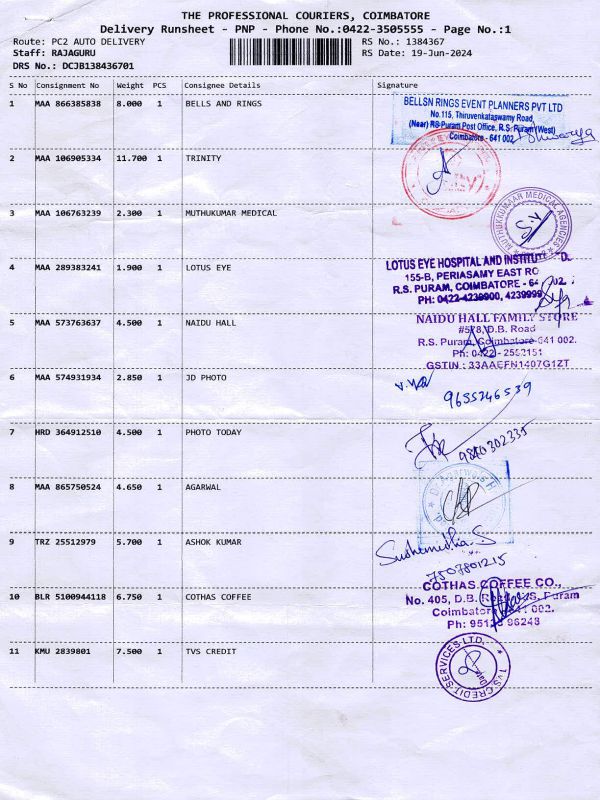 THE PROFESSIONAL COURIERS, COIMBATORE
Delivery Runsheet - PNP - Phone No.:0422-3505555 - Page No.:1
Route: PC2 AUTO DELIVERY
RS No.: 1384367
Staff: RAJAGURU
RS Date: 19-Jun-2024
DRS No.: DCJB138436701
S No Consignment No Weight PCS Consignee Details Signature
1 MAA 866385838 8.000 1 BELLS AND RINGS
BELLSN RINGS EVENT PLANNERS PVT LTD
No.115, Thiruvenkataswamy Road
(Near) RS Puram Post Office, R.S. Puram (West)
Coimbatore - 641 002
2 MAA 106905334 11.700 1 TRINITY
3 MAA 106763239 2.300 1 MUTHUKUMAR MEDICAL
MUTHUKKUMAAR MEDICAL AGENCIES
S.V
4 MAA 289383241 1.900 1 LOTUS EYE
LOTUS EYE HOSPITAL AND
155-B, PERIASAMY EAST
R.S. PURAM, COIMBATORE -
PH: 0422-4239900, 4239999
5 MAA 573763637 4.500 1 NAIDU HALL
NAIDU HALL FAMILY STORE
#578, D.B. Road
R.S. Puram, Coimbatore-641 002.
Ph: 0422 - 2552151
GSTIN : 33AAEFN1407G1ZT
6 MAA 574931934 2.850 1 JD PHOTO
9655346539
7 HRD 364912510 4.500 1 PHOTO TODAY
9840302335
8 MAA 865750524 4.650 1 AGARWAL
Dr. Agarwal's
9 TRZ 25512979 5.700 1 ASHOK KUMAR
7507801215
10 BLR 5100944118 6.750 1 COTHAS COFFEE
COTHAS COFFEE CO.,
No. 405, D.B. Road, R.S. Puram
Coimbatore - 641 002.
Ph: 95128 96248
11 KMU 2839801 7.500 1 TVS CREDIT
TVS CREDIT SERVICES LTD.